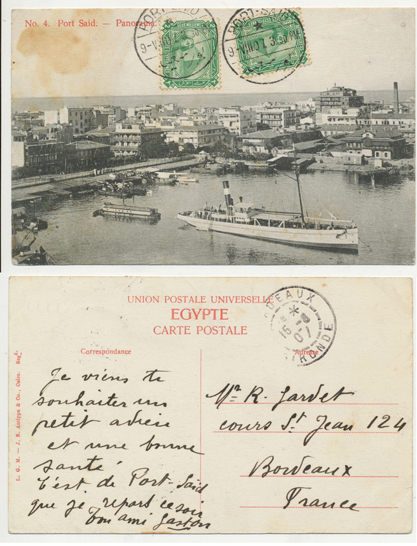 No. 4. Port Said. — Panorama.
PORT-SAID
9-VIII 07 3.30 PM
PORT-SAID
9-VIII 07 3.30 PM
UNION POSTALE UNIVERSELLE
EGYPTE
CARTE POSTALE
BORDEAUX
15 -8
07
GIRONDE
Correspondance
Adresse
Je viens te
souhaiter un
petit adieu
et une bonne
santé
C'est de Port-Said
que je repart ce soir
ton ami Gaston
Mr R. Gardet
cours St Jean 124
Bordeaux
France